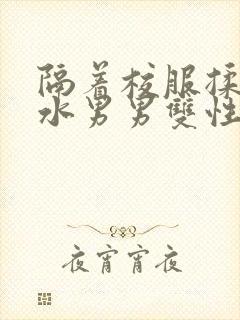 隔着校服揉
水男男雙性
夜宵宵夜